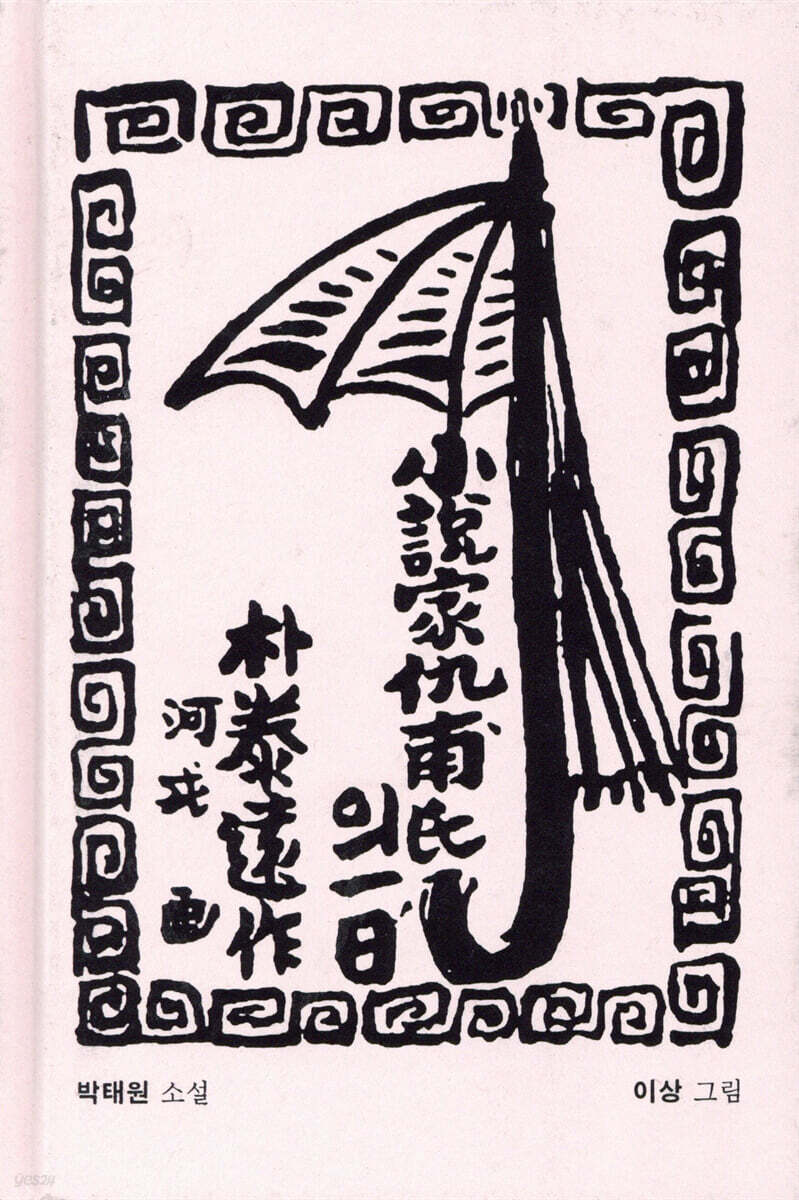 小說家仇甫氏
의一日
朴泰遠作
河戎 画
박태원 소설
이상 그림
yes24